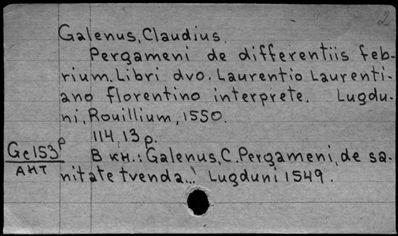 2
Galenus, Claudius.
Pergameni de differentiis feb-
rium. Libri dvo. Laurentio Laurenti-
ano florentino interprete. Lugdu-
ni, Rouillium, 1550.
114, 13 p.
Gc153p
АНТ
В кн.: Galenus, C. Pergameni, de sa-
nitate tvenda..! Lugduni 1549.